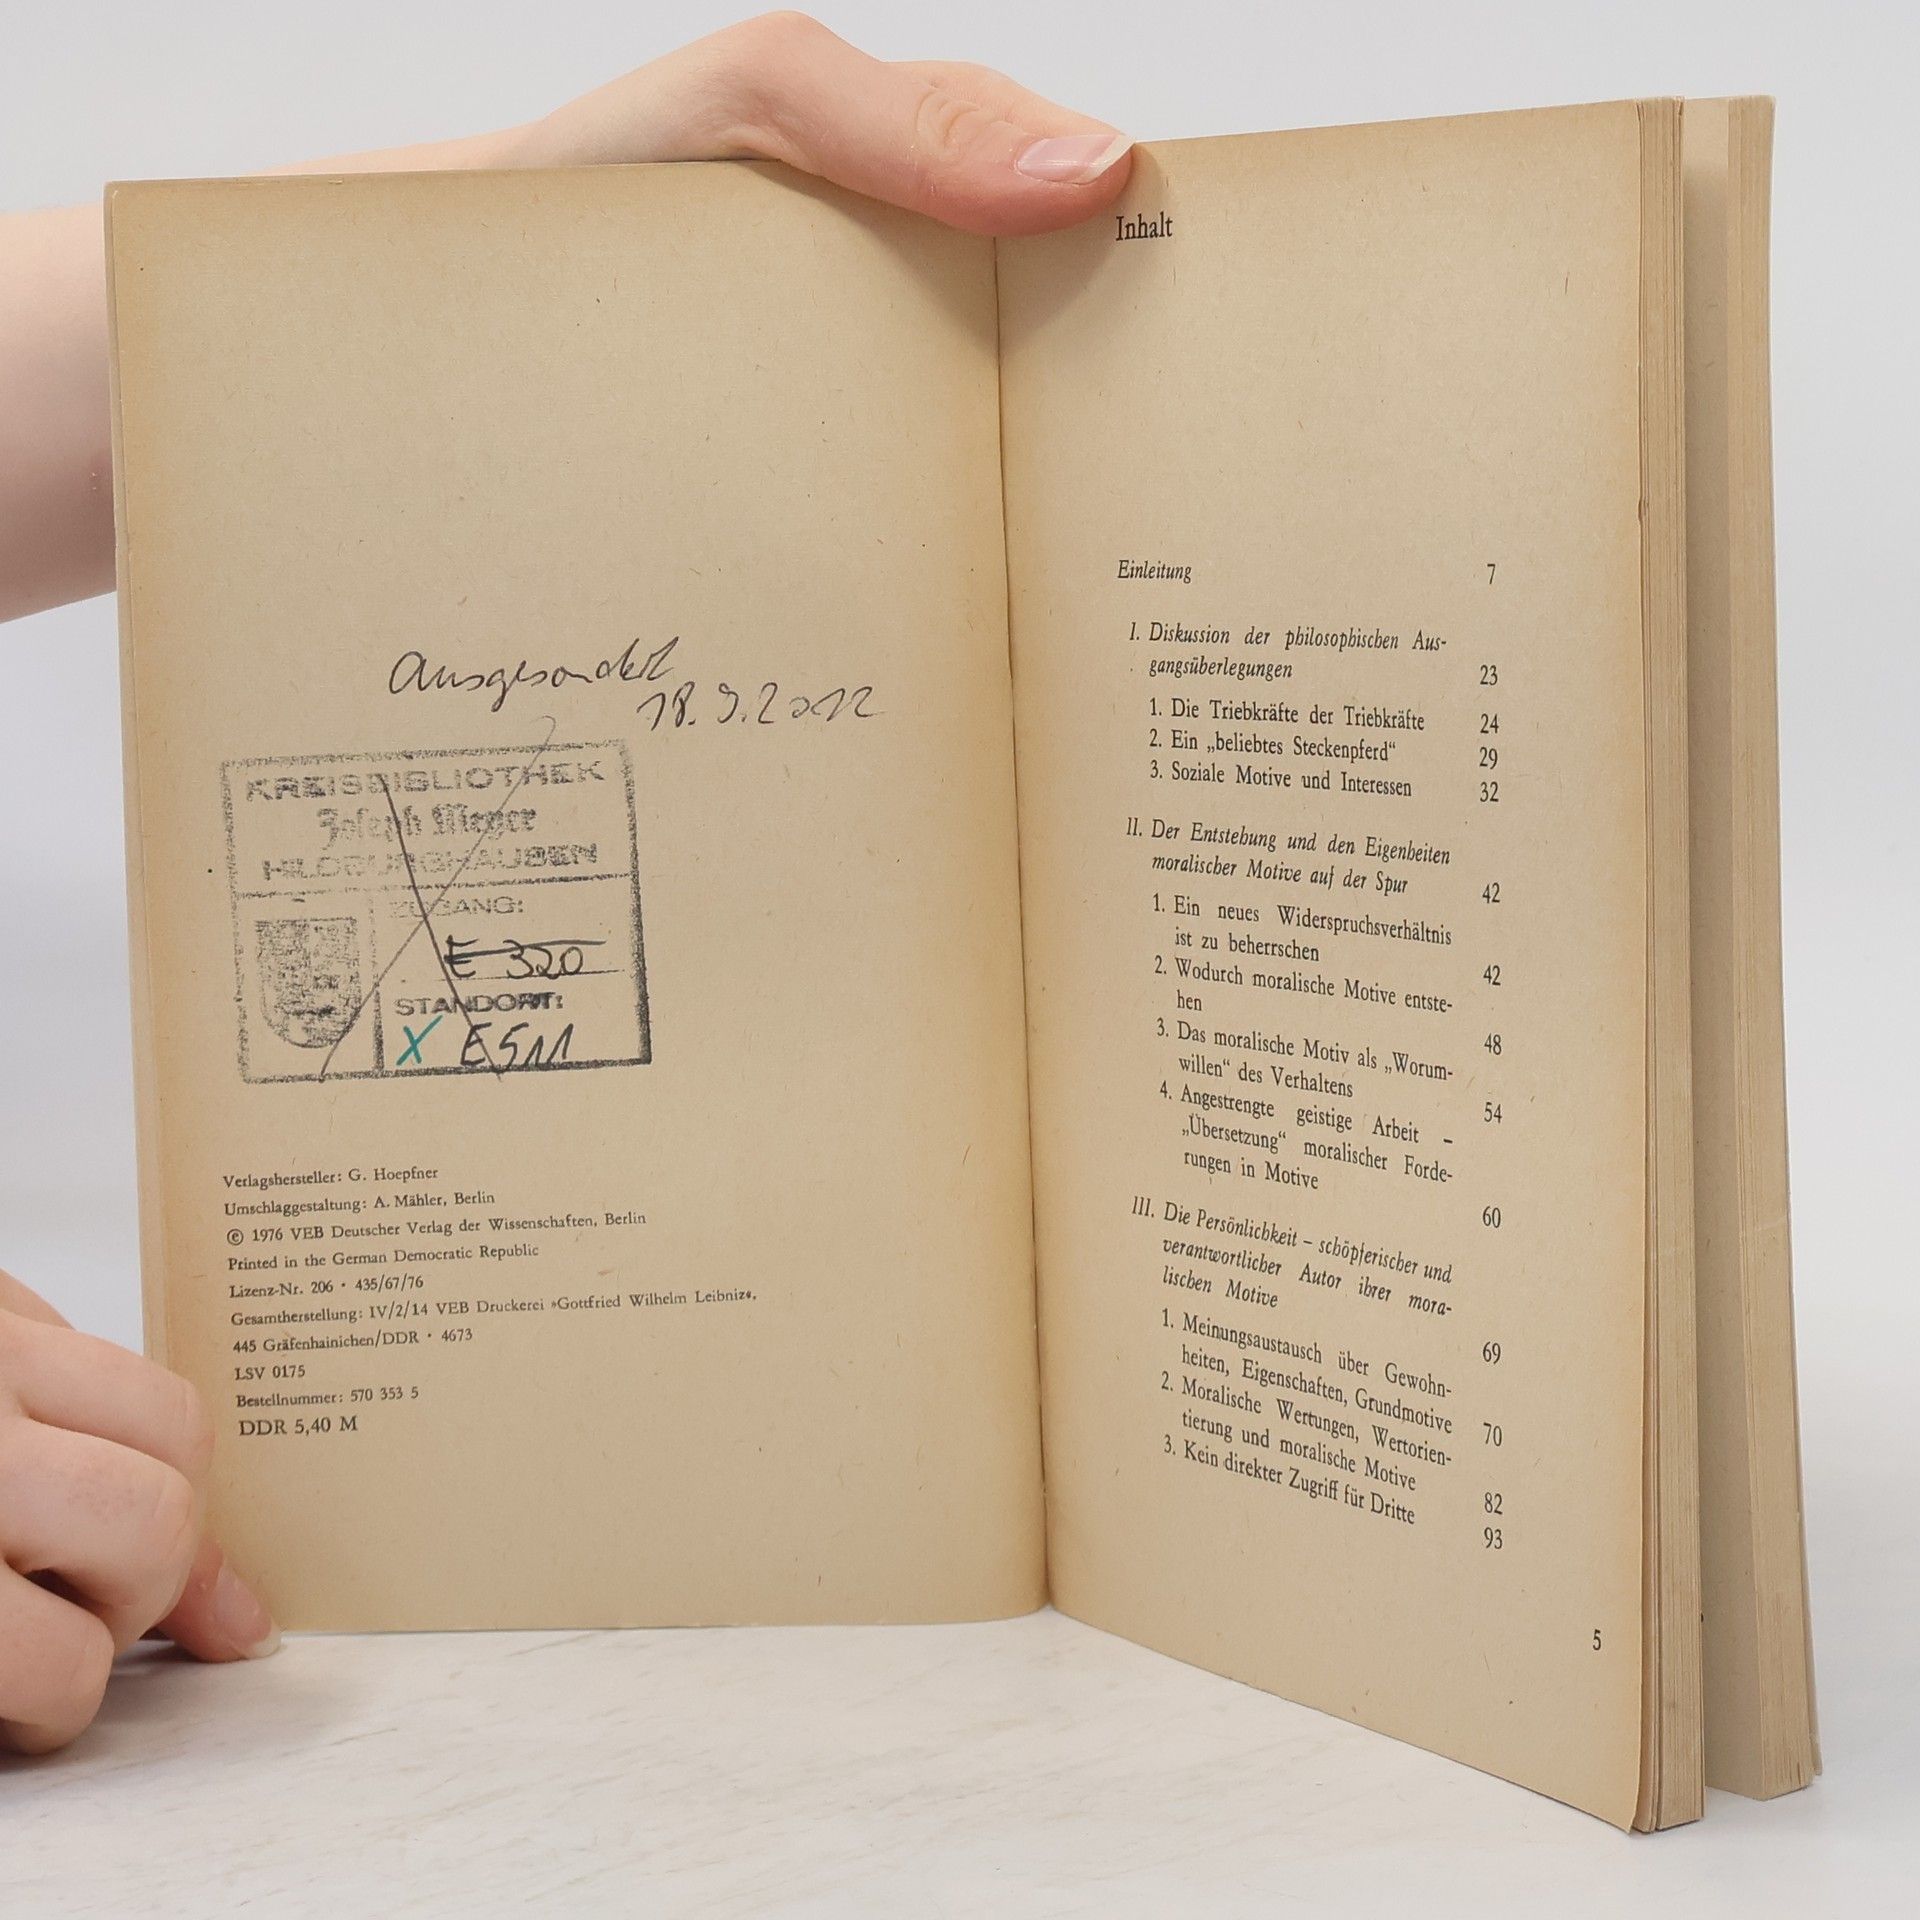 Ausgesondert
18.9.2012
KREISBIBLIOTHEK
Joseph Meyer
HILDBURGHAUSEN
ZUGANG:
E 320
STANDORT:
X E511
Verlagshersteller: G. Hoepfner
Umschlaggestaltung: A. Mähler, Berlin
© 1976 VEB Deutscher Verlag der Wissenschaften, Berlin
Printed in the German Democratic Republic
Lizenz-Nr. 206 · 435/67/76
Gesamtherstellung: IV/2/14 VEB Druckerei »Gottfried Wilhelm Leibniz«,
445 Gräfenhainichen/DDR · 4673
LSV 0175
Bestellnummer: 570 353 5
DDR 5,40 M
Inhalt
Einleitung 7
I. Diskussion der philosophischen Aus-
gangsüberlegungen 23
1. Die Triebkräfte der Triebkräfte 24
2. Ein „beliebtes Steckenpferd“ 29
3. Soziale Motive und Interessen 32
II. Der Entstehung und den Eigenheiten
moralischer Motive auf der Spur 42
1. Ein neues Widerspruchsverhältnis
ist zu beherrschen 42
2. Wodurch moralische Motive entste-
hen 48
3. Das moralische Motiv als „Worum-
willen“ des Verhaltens 54
4. Angestrengte geistige Arbeit –
„Übersetzung“ moralischer Forde-
rungen in Motive 60
III. Die Persönlichkeit – schöpferischer und
verantwortlicher Autor ihrer mora-
lischen Motive 69
1. Meinungsaustausch über Gewohn-
heiten, Eigenschaften, Grundmotive 70
2. Moralische Wertungen, Wertorien-
tierung und moralische Motive 82
3. Kein direkter Zugriff für Dritte 93
5